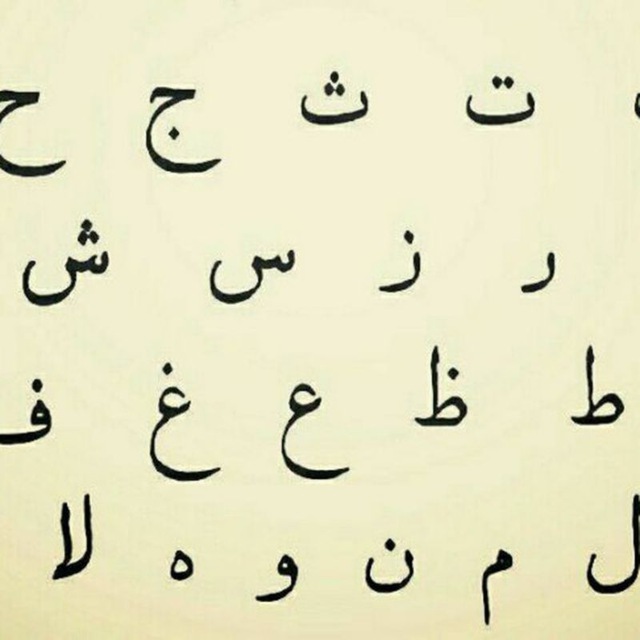 ت ث ج ح
ر ز س ش
ط ظ ع غ ف
ل م ن و ه لا